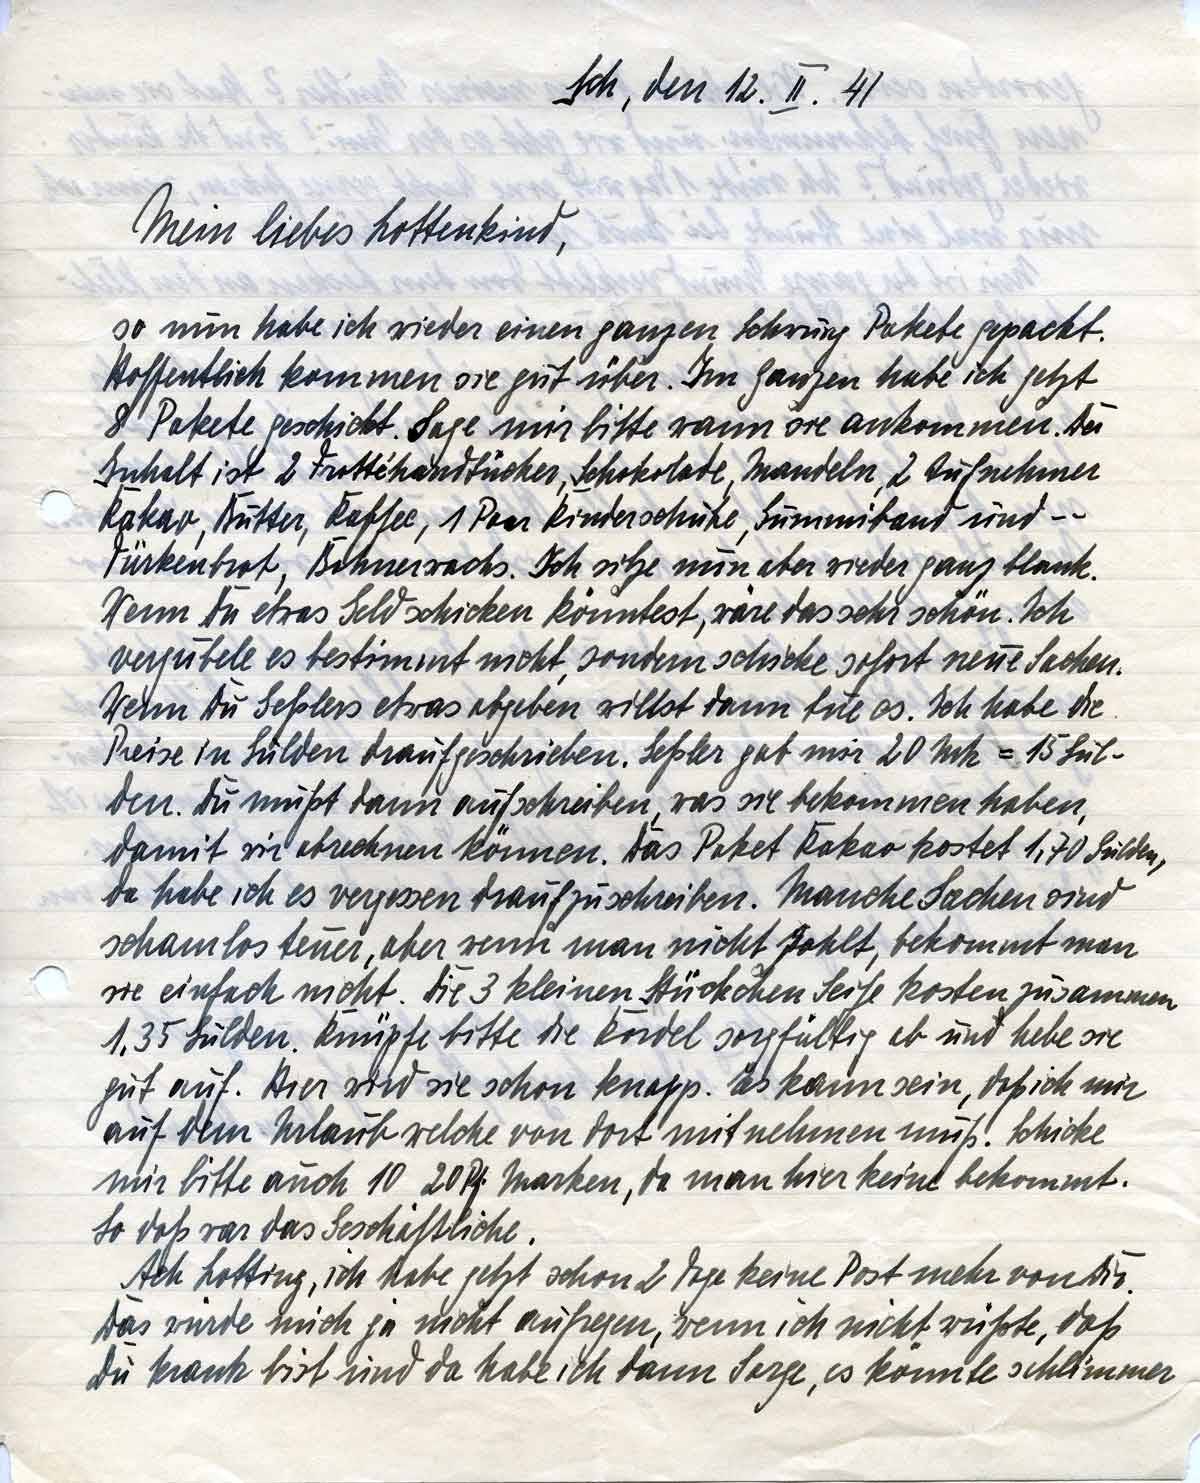 Sch, den 12. II. 41
Mein liebes Lottenkind,
so nun habe ich wieder einen ganzen Schwung Pakete gepackt.
Hoffentlich kommen sie gut über. Im Ganzen habe ich jetzt
8 Pakete geschickt. Sage mir bitte wann sie ankommen. Der
Inhalt ist 2 Frottéhandtücher, Schokolade, Mandeln, 2 Aufnehmer
Kakao, Butter, Kaffee, 1 Paar Kinderschuhe, Gummiband und --
Türkenbrot, Bohnerwachs. Ich sitze nun aber wieder ganz blank.
Wenn Du etwas Geld schicken könntest, wäre das sehr schön. Ich
verjubele es bestimmt nicht, sondern schicke sofort neue Sachen.
Wenn Du Geßlers etwas abgeben willst dann tue es. Ich habe die
Preise in Gulden draufgeschrieben. Geßler gab mir 20 Mk = 15 Gul-
den. Du mußt dann aufschreiben, was sie bekommen haben,
damit wir abrechnen können. Das Paket Kakao kostet 1,70 Gulden,
da habe ich es vergessen draufzuschreiben. Manche Sachen sind
schamlos teuer, aber wenn man nicht zahlt, bekommt man
sie einfach nicht. Die 3 kleinen Stückchen Seife kosten zusammen
1,35 Gulden. Knüpfe bitte die Kordel sorgfältig ab und hebe sie
gut auf. Hier wird sie schon knapp. Es kann sein, daß ich mir
auf dem Urlaub welche von dort mitnehmen muß. Schicke
mir bitte auch 10 20 Pf. Marken, da man hier keine bekommt.
So daß war das Geschäftliche.
Ach Lotting, ich habe jetzt schon 2 Tage keine Post mehr von Dir.
Das würde mich ja nicht aufregen, wenn ich nicht wüßte, daß
Du krank bist und da habe ich dann Sorge, es könnte schlimmer